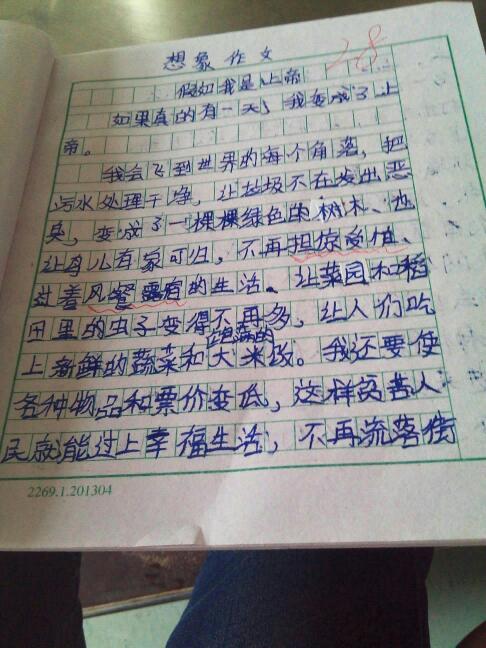 想象作文
28
假如我是上帝
如果真的有一天，我变成了上
帝。
我会飞到世界的每个角落，把
污水处理干净，让垃圾不在发出恶
臭，变成了一棵棵绿色的树木、也
让鸟儿有家可归，不再担惊受怕、
过着风餐露宿的生活。让菜园和稻
田里的虫子变得不再多，让人们吃
上新鲜的蔬菜和饱满的大米饭。我还要使
各种物品和票价变低，这样贫苦人
民就能过上幸福生活，不再流落街
2269.1.201304